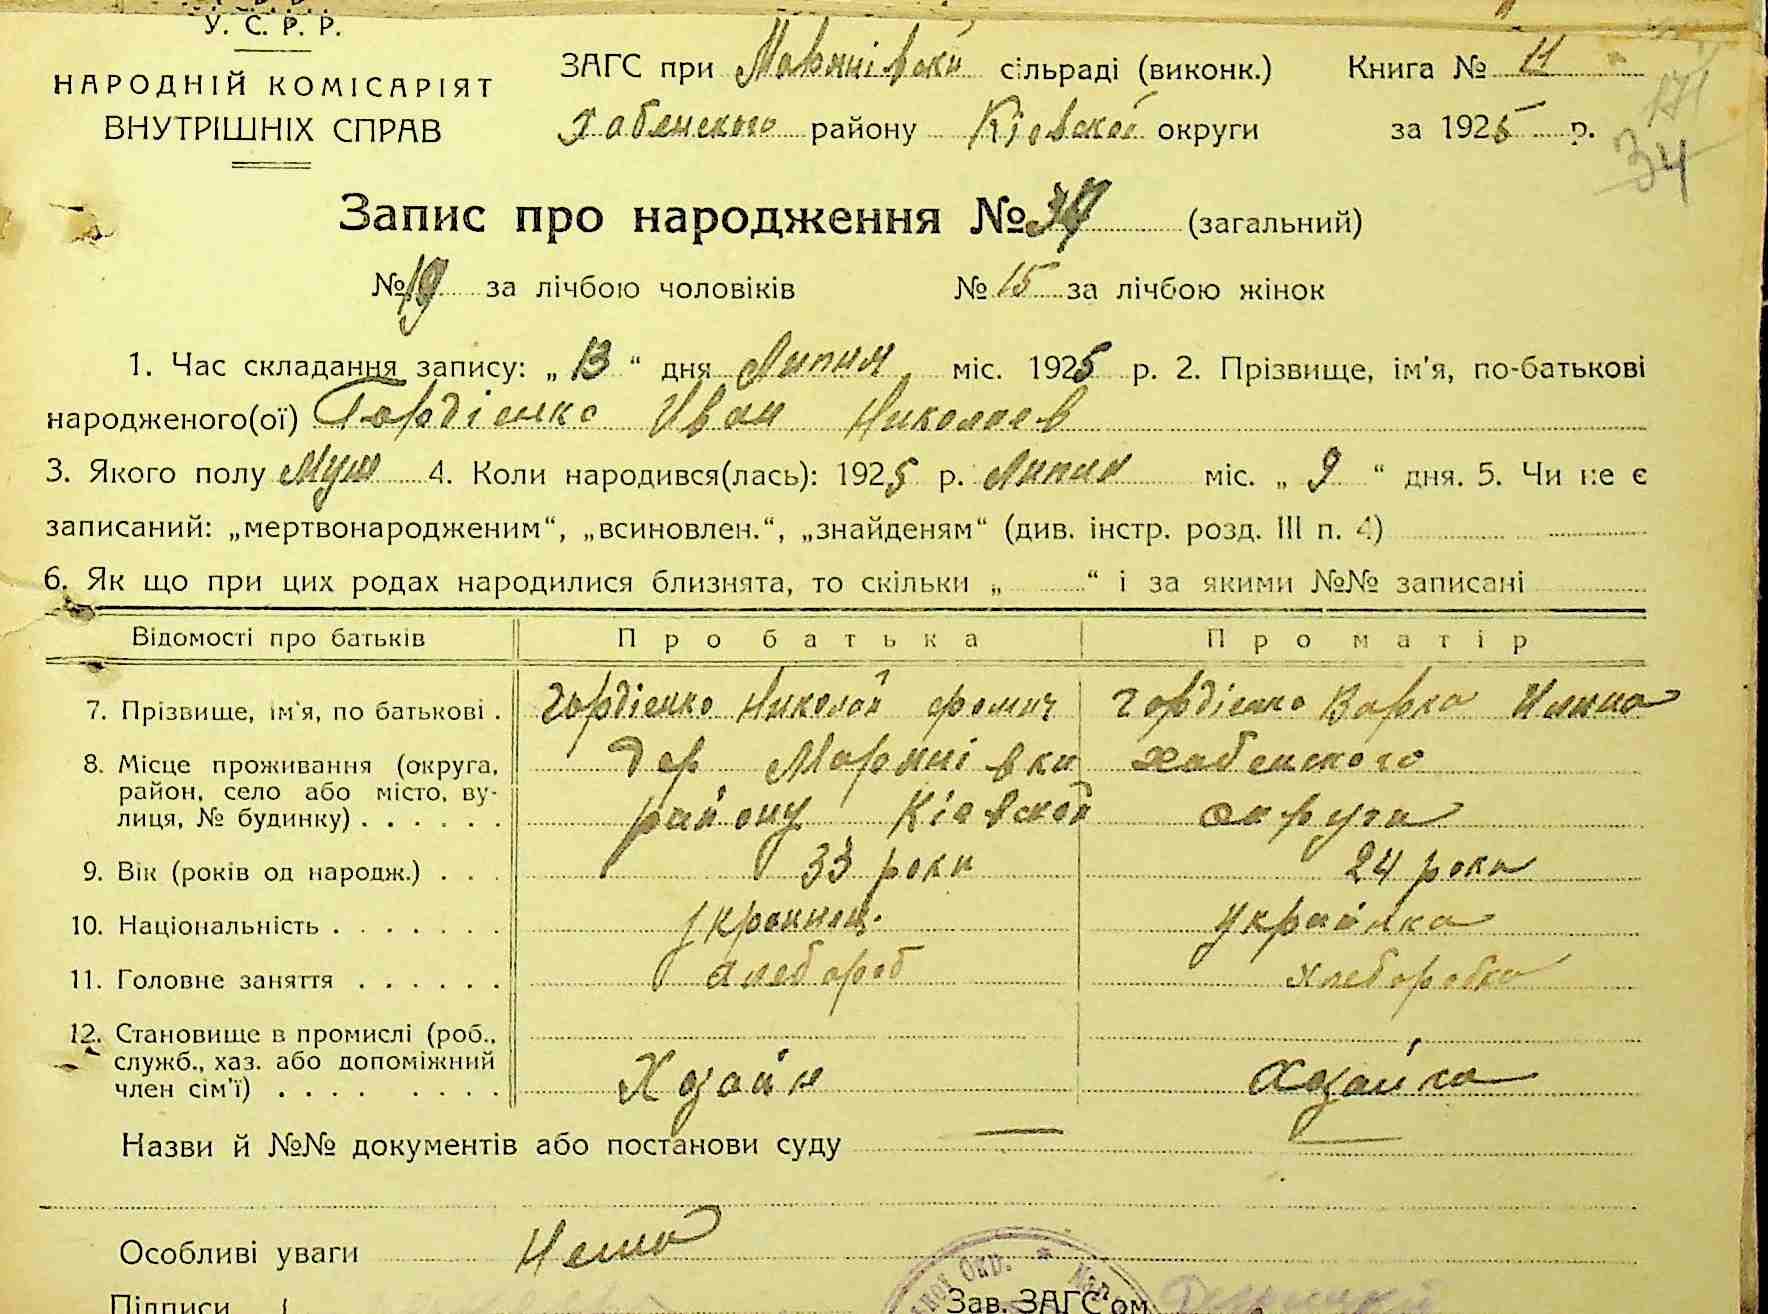 У. С. Р. Р.
НАРОДНІЙ КОМІСАРІЯТ
ВНУТРІШНІХ СПРАВ
ЗАГС при Моринівской сільраді (виконк.) Книга № 11
Хабенского району Кіевской округи за 1925 р.
171
34
Запис про народження № 34 (загальний)
№ 19 за лічбою чоловіків № 15 за лічбою жінок
1. Час складання запису: „ 13 “ дня Липня міс. 1925 р. 2. Прізвище, ім'я, по-батькові
народженого(ої) Гордіенко Иван Николаев
3. Якого полу Муж 4. Коли народився(лась): 1925 р. Липня міс. „ 9 “ дня. 5. Чи не є
записаний: „мертвонародженим“, „всиновлен.“, „знайденям“ (див. інстр. розд. III п. 4)
6. Як що при цих родах народилися близнята, то скільки „ “ і за якими №№ записані
Відомості про батьків Про батька Про матір
7. Прізвище, ім'я, по батькові . Гордіенко Николай Фомич Гордіенко Варка
8. Місце проживання (округа, район, село або місто, вулиця, № будинку) . . . . . . дер Моринівки Хабенского
району Кіевской округи
9. Вік (років од народж.) . . . 33 роки 24 роки
10. Національність . . . . . . . украинец. украінка
11. Головне заняття . . . . . . хлебороб хлеборобка
12. Становище в промислі (роб., служб., хаз. або допоміжний член сім'ї) . . . . . . . . Хозаін Хозайка
Назви й №№ документів або постанови суду
Особливі уваги Нема
Підписи Зав. ЗАГС'ом